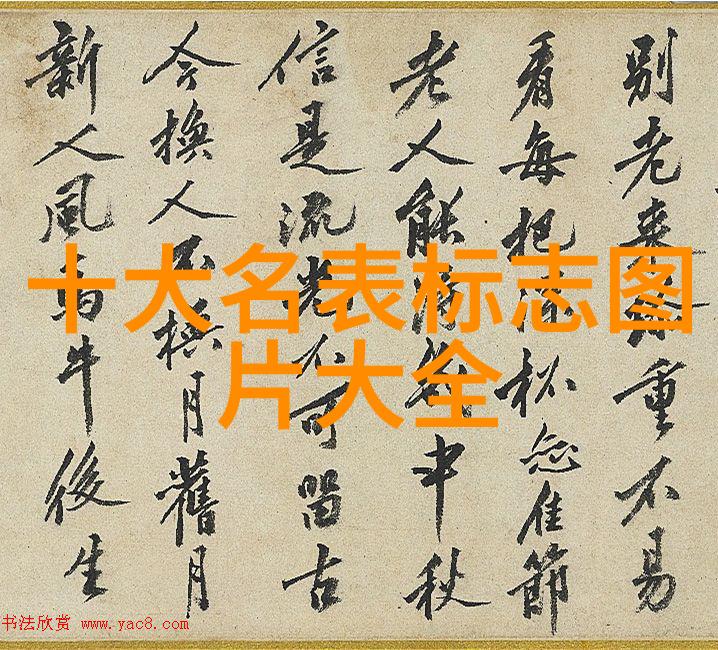 别老来重不易
看每把佳節
老人能得幾中秋
信是流光不可留古
今換人不換月舊月
新人風馬牛後生
十大名表标志图
片大全
书法欣赏 www.yac8.com